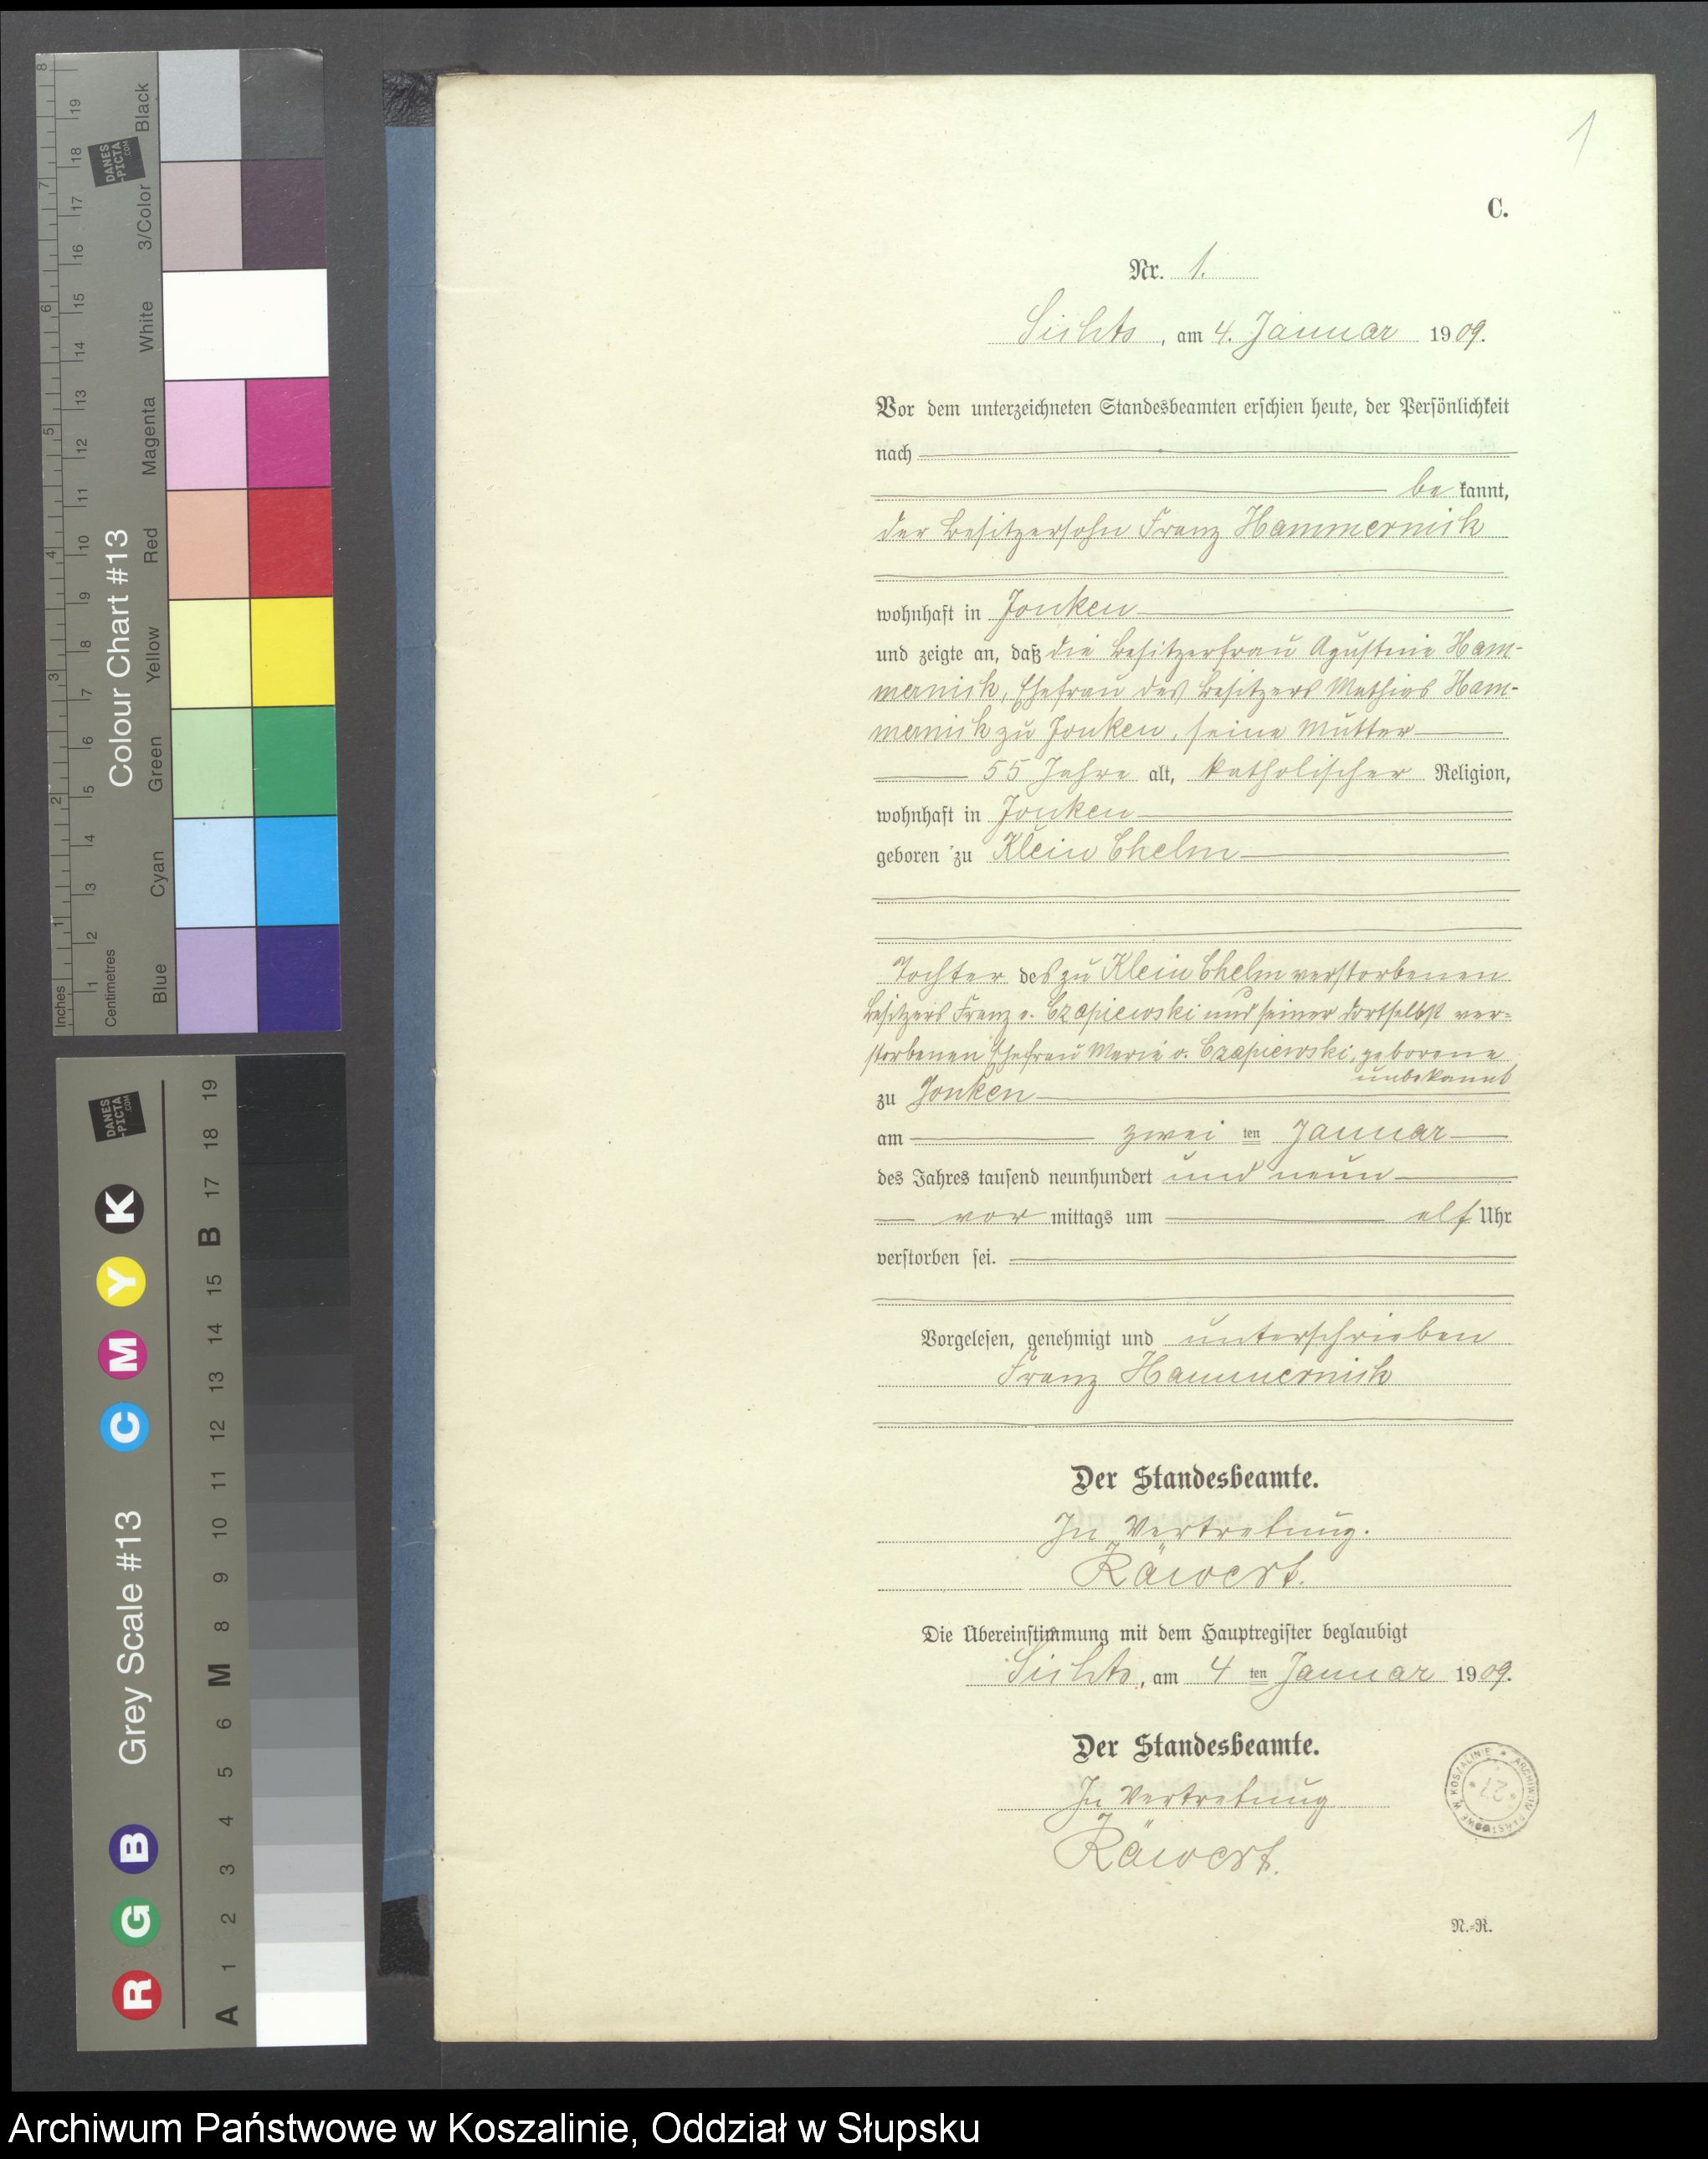 1
C.
Nr. 1.
Sichts, am 4. Januar 1909.
Vor dem unterzeichneten Standesbeamten erschien heute, der Persönlichkeit
nach
be kannt,
der Besitzersohn Franz Hammernik
wohnhaft in Jonken
und zeigte an, daß die Besitzerfrau Agustine Ham-
mernik, Ehefrau des Besitzers Mathias Ham-
mernik zu Jonken, seine Mutter
55 Jahre alt, katholischer Religion,
wohnhaft in Jonken
geboren zu Klein Chelm
Tochter des zu Klein Chelm verstorbenen
Besitzers Franz v. Czapiewski und seiner dortselbst ver-
storbenen Ehefrau Marie v. Czapiewski, geborene
unbekannt
zu Jonken
am zwei ten Januar
des Jahres tausend neunhundert und neun
vor mittags um elf Uhr
verstorben sei.
Vorgelesen, genehmigt und unterschrieben
Franz Hammernik
Der Standesbeamte.
In Vertretung.
Räwert.
Die Übereinstimmung mit dem Hauptregister beglaubigt
Sichts, am 4 ten Januar 1909.
Der Standesbeamte.
In Vertretung
Räwert.
ARCHIWUM PAŃSTWOWE W KOSZALINIE
27
N.-R.
Colour Chart #13
Inches
Centimetres
Blue Cyan Green Yellow Red Magenta White 3/Color Black
1 2 3 4 5 6 7 8
1 2 3 4 5 6 7 8 9 10 11 12 13 14 15 16 17 18 19
DANES
-PICTA
.COM
Grey Scale #13
R G B C M Y K
A 1 2 3 4 5 6 M 8 9 10 11 12 13 14 15 B 17 18 19
DANES
-PICTA
.COM
Archiwum Państwowe w Koszalinie, Oddział w Słupsku